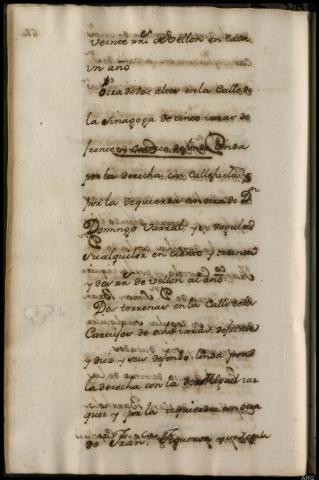 Veinte rr.s de vellon en cada
un año
Otra de dos altos en la Calle de
la Sinagoga de cinco varas de
frente y catorce de fondo Linda
por la derecha con Callejuela y
por la izquierda con otra de D.n
Domingo Varral, y se regulad
su alquiler en ciento y treinta
y dos rr.s de vellon al año
Dos terrenas en la Calle de los
Cartujos de ocho varas de frente
y diez y seis de fondo, Linda por
la derecha con la de Miguel
y por la izquierda con otra
de Fran.co Figueroa y se regula